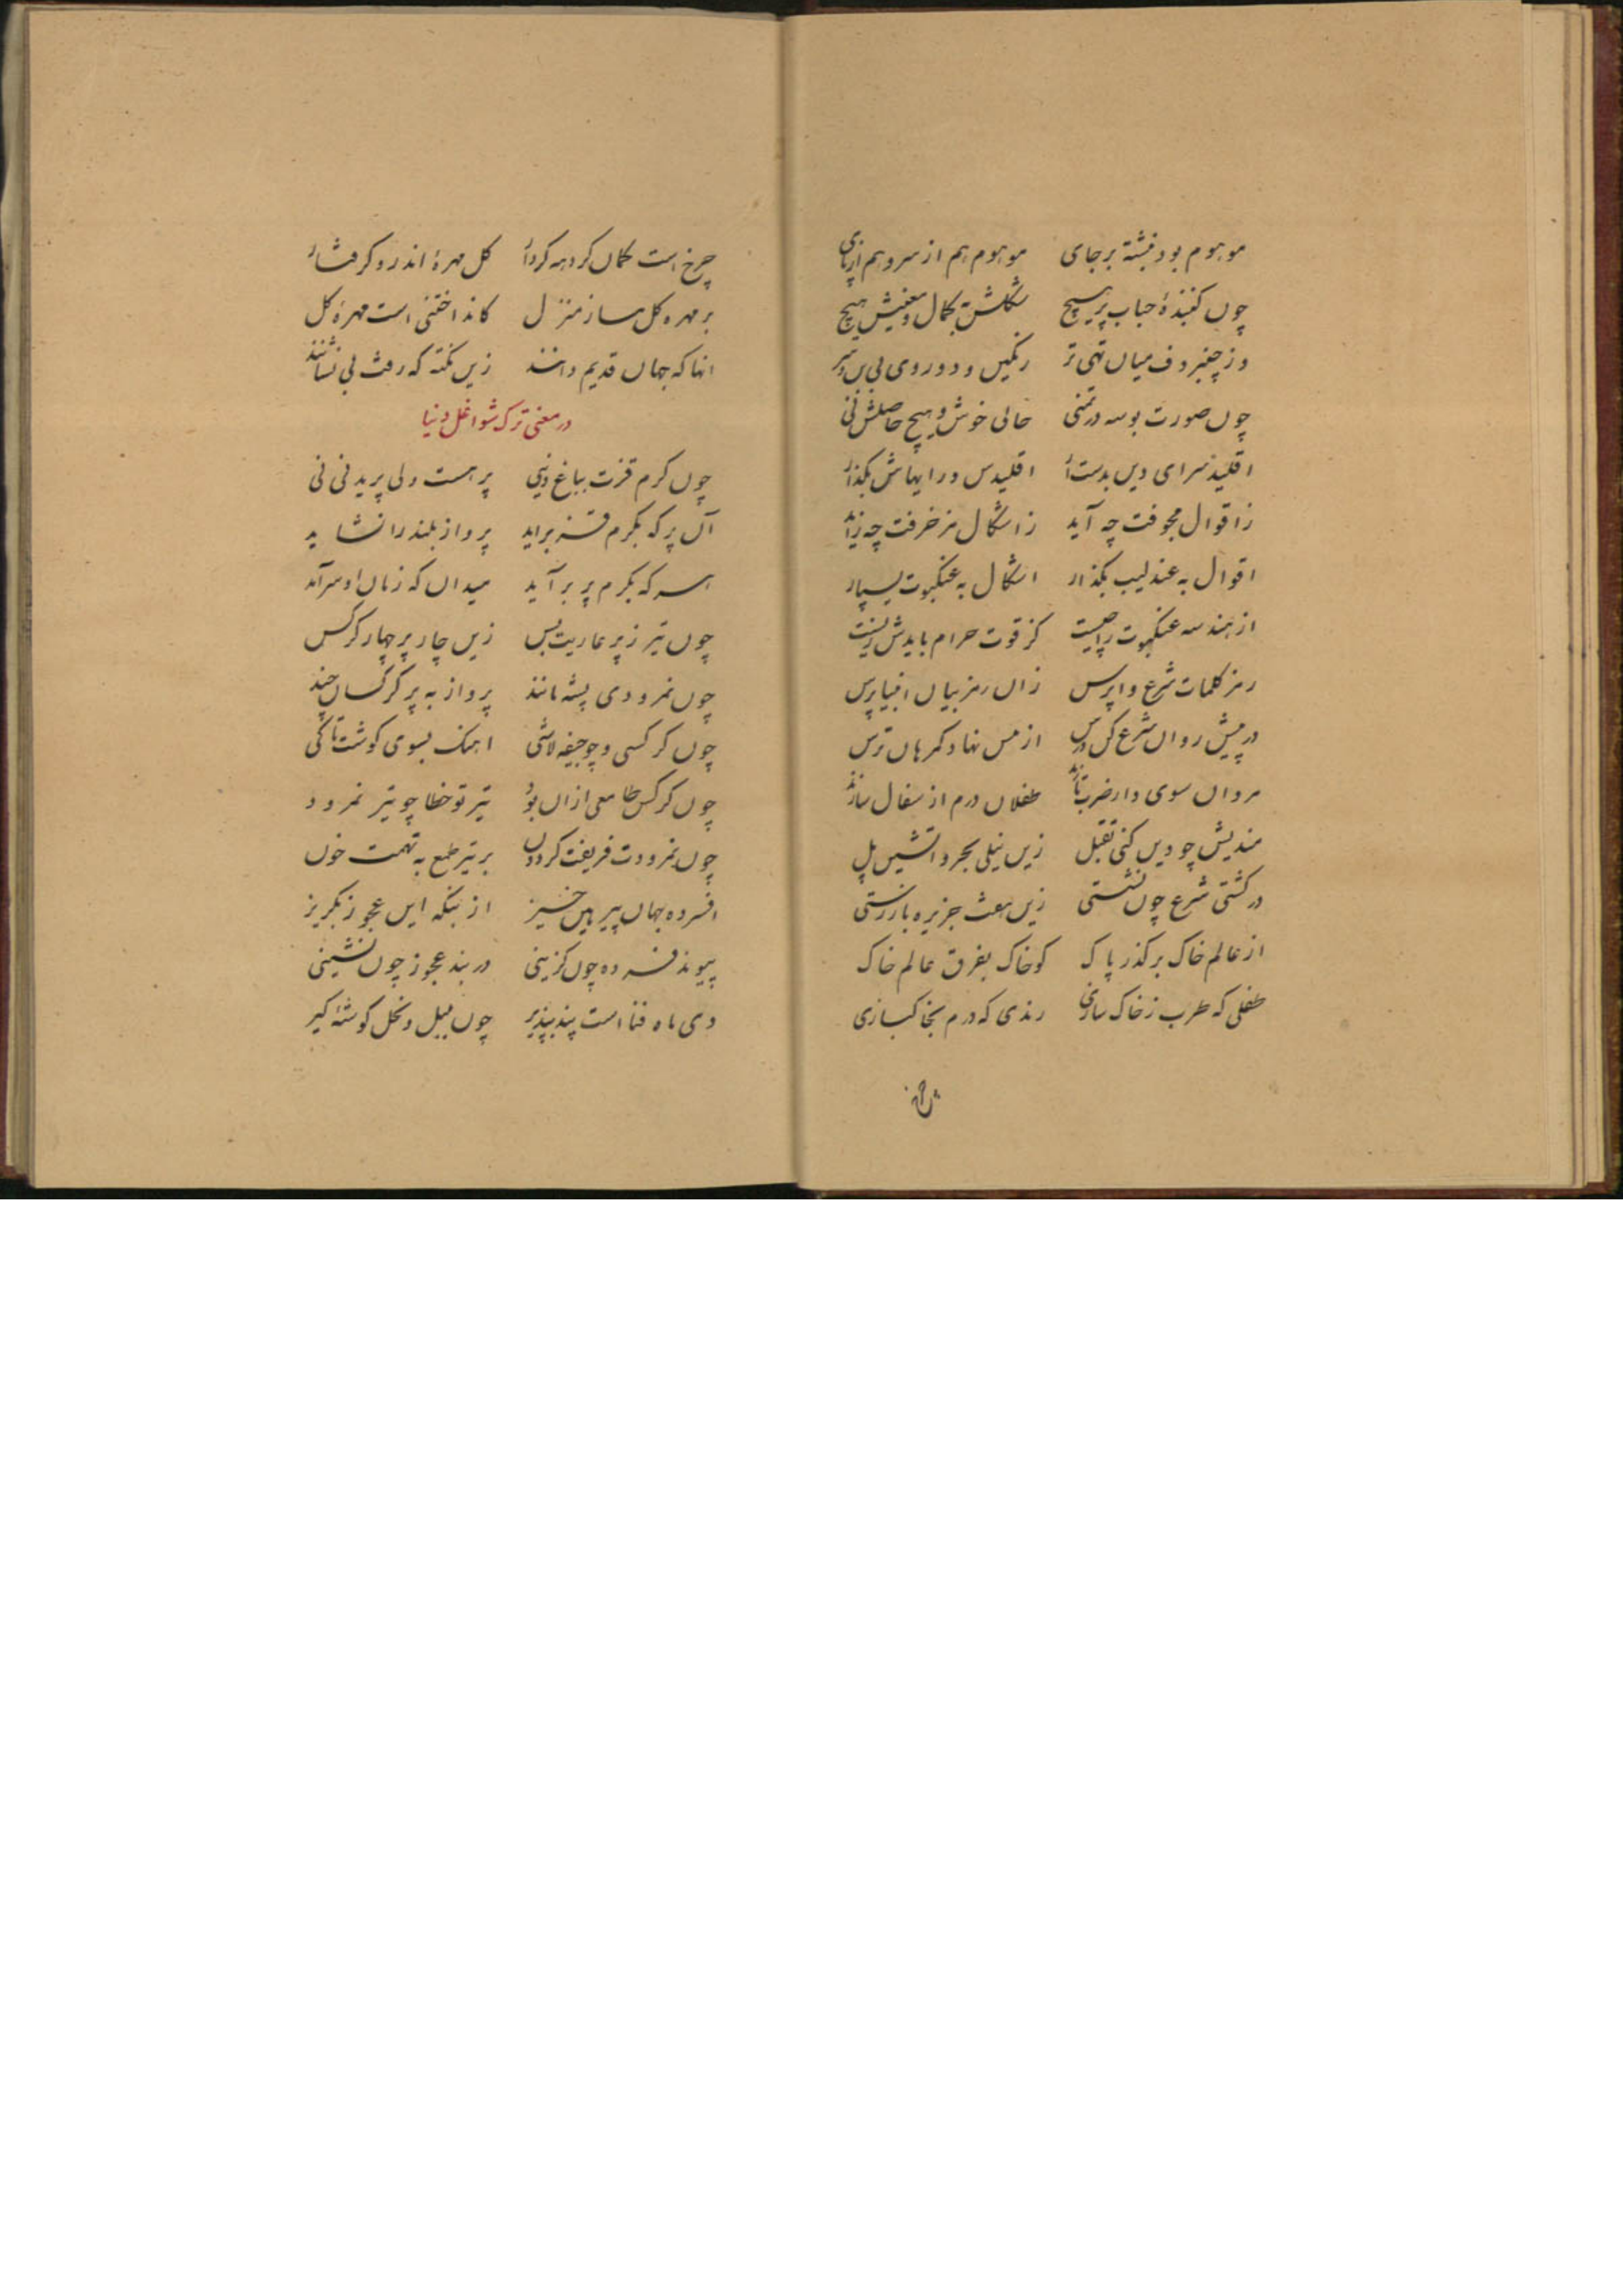 موهوم بود نبشته برجای موهوم هم از سر و هم از پای
چون گنبذهٔ حباب پر هیچ شکلش بکمال و معنیش هیچ
وز چنبر دف میان تهی تر رنگین و دو روی بی بن و سر
چون صورت بوسه در تمنی خالی خوش و هیچ حاصلش نی
اقلیذ سرای دین بدست آر اقلیدس و رایهاش بگذار
ز اقوال مجوفت چه آید ز اشکال مزخرفت چه زاید
اقوال به عندلیب بگذار اشکال به عنکبوت بسپار
از هندسه عنکبوت را چیست کز قوت حرام بایدش زیست
رمز کلمات شرع واپرس زان رمز بیان انبیا پرس
در پیش روان شرع کن درس از مس نهاد گمرهان ترس
مردان سوی دار ضرب تازند طفلان درم از سفال سازند
مندیش چو دین کنی تقبل زین نیلی بحر و آتشین پل
در کشتی شرع چون نشستی زین هفت جزیره باز رستی
از عالم خاک برگذر پاک کو خاک بفرق عالم خاک
طفلی که طرب ز خاک سازی رندی که درم بخاک بازی
چرخ است کمان گردهه کردار گل مهرهٔ اندرو گرفتار
بر مهره گل مساز منزل کانداختنی است مهرهٔ گل
انها که جهان قدیم دانند زین نکته که رفت بی نشانند
در معنی ترک شواغل دنیا
چون کرم قزت بباغ دنیی پر هست ولی پریدنی نی
آن پر که بکرم قز براید پرواز بلند را نشاید
هر که بکرم پر برآید میدان که زمان او سرآید
چون تیر ز پر عاریت بس زین چار پر چهار کرکس
چون نمرودی پشه مانند پرواز به پر کرکسان چند
چون کرکسی و چو جیفه لاشی اهنک بسوی گوشت تا کی
چون کرکس طامعی ازان بود تیر تو خطا چو تیر نمرود
چون نمرودت فریفت گردون بر تیر طمع به تهمت خون
افسرده جهان پیر بین خیز از بنگه این عجوز بگریز
پیوند فسرده چون گزینی در بند عجوز چون نشینی
دی ماه فنا است پند بپذیر چون بلبل و نحل گوشه گیر